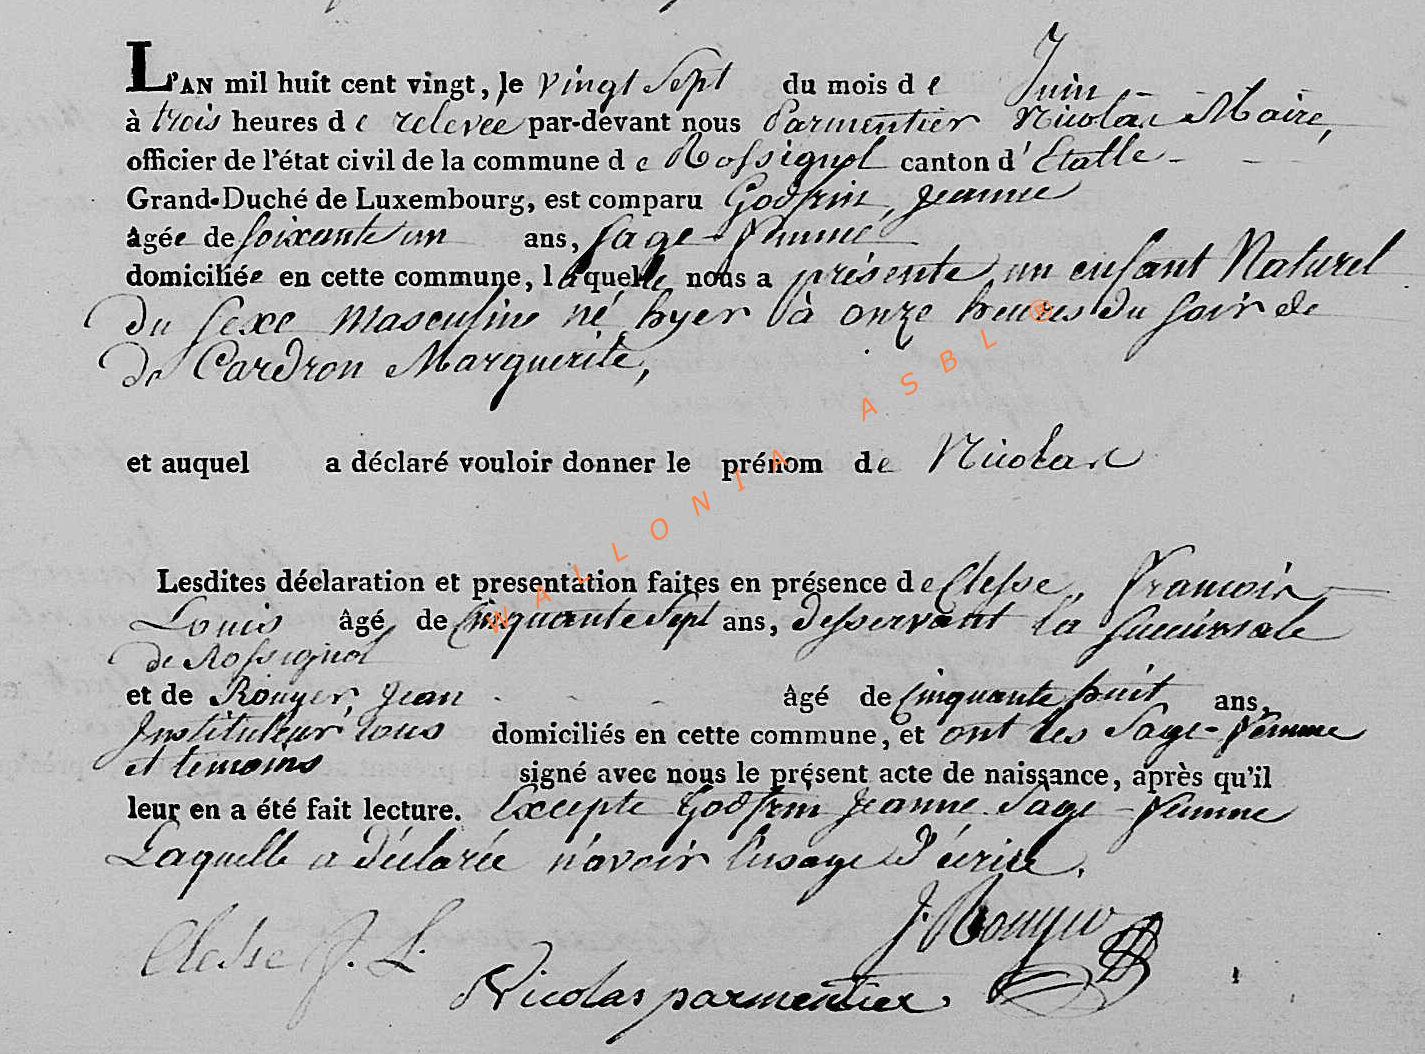 L'AN mil huit cent vingt, le vingt Sept du mois de Juin
à trois heures de relevée par-devant nous Parmentier Nicolas Maire,
officier de l'état civil de la commune de Rossignol canton d'Etalle
Grand-Duché de Luxembourg, est comparu Godfrin, Jeanne
âgée de soixante un ans, Sage-femme
domiciliée en cette commune, laquelle nous a présenté un enfant Naturel
du sexe Masculine né hyer à onze heures du soir de
de Cardron Marguerite,
et auquel a déclaré vouloir donner le prénom de Nicolas
Lesdites déclaration et presentation faites en présence de Clesse, François
Louis âgé de Cinquante Sept ans, desservant la succursale
de Rossignol
et de Rouyer, Jean âgé de Cinquante huit ans,
Instituteur tous domiciliés en cette commune, et ont les Sage-femme
et témoins signé avec nous le présent acte de naissance, après qu'il
leur en a été fait lecture. Excepte Godfrin Jeanne Sage-femme
Laquelle a déclarée n'avoir l'usage d'écrire.
J. Rouyer
Clesse f. L.
Nicolas parmentier
WALLONIA ASBL ®